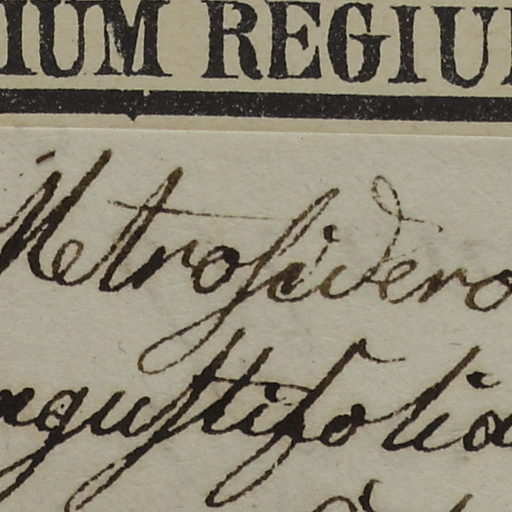 IUM REGIU
Metrosidero
ngustifolia